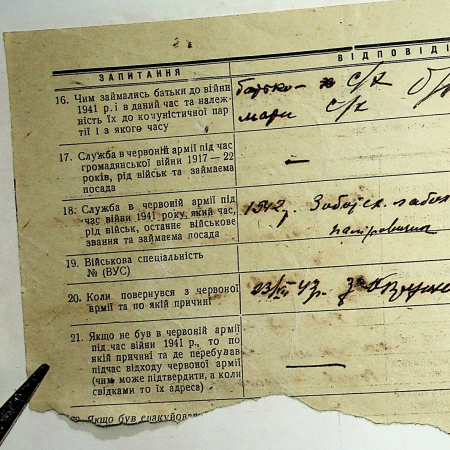 ЗАПИТАННЯ
ВІДПОВІДІ
16. Чим займались батьки до війни
1941 р. і в даний час та належ-
ність їх до комуністичної пар-
тії і з якого часу
батько — с/х
мати с/х
17. Служба в червоній армії під час
громадянської війни 1917—22
років, рід військ та займаєма
посада
—
18. Служба в червоній армії під
час війни 1941 року, який час,
рід військ, останнє військове
звання та займаєма посада
1942 р.
19. Військова спеціальність
№ (ВУС)
20. Коли повернувся з червоної
армії та по якій причині
43 р. з
21. Якщо не був в червоній армії
під час війни 1941 р., то по
якій причині та де перебував
підчас відходу червоної армії
(чим може підтвердити, а коли
свідками то їх адреса)
—
Якщо був евакуйован